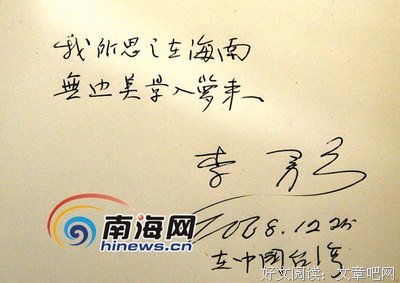 我所思之在海南
無边美景入夢来
李
南海网
hinews.cn
2008.12.25
在中國台湾
好文阅读：文章吧网